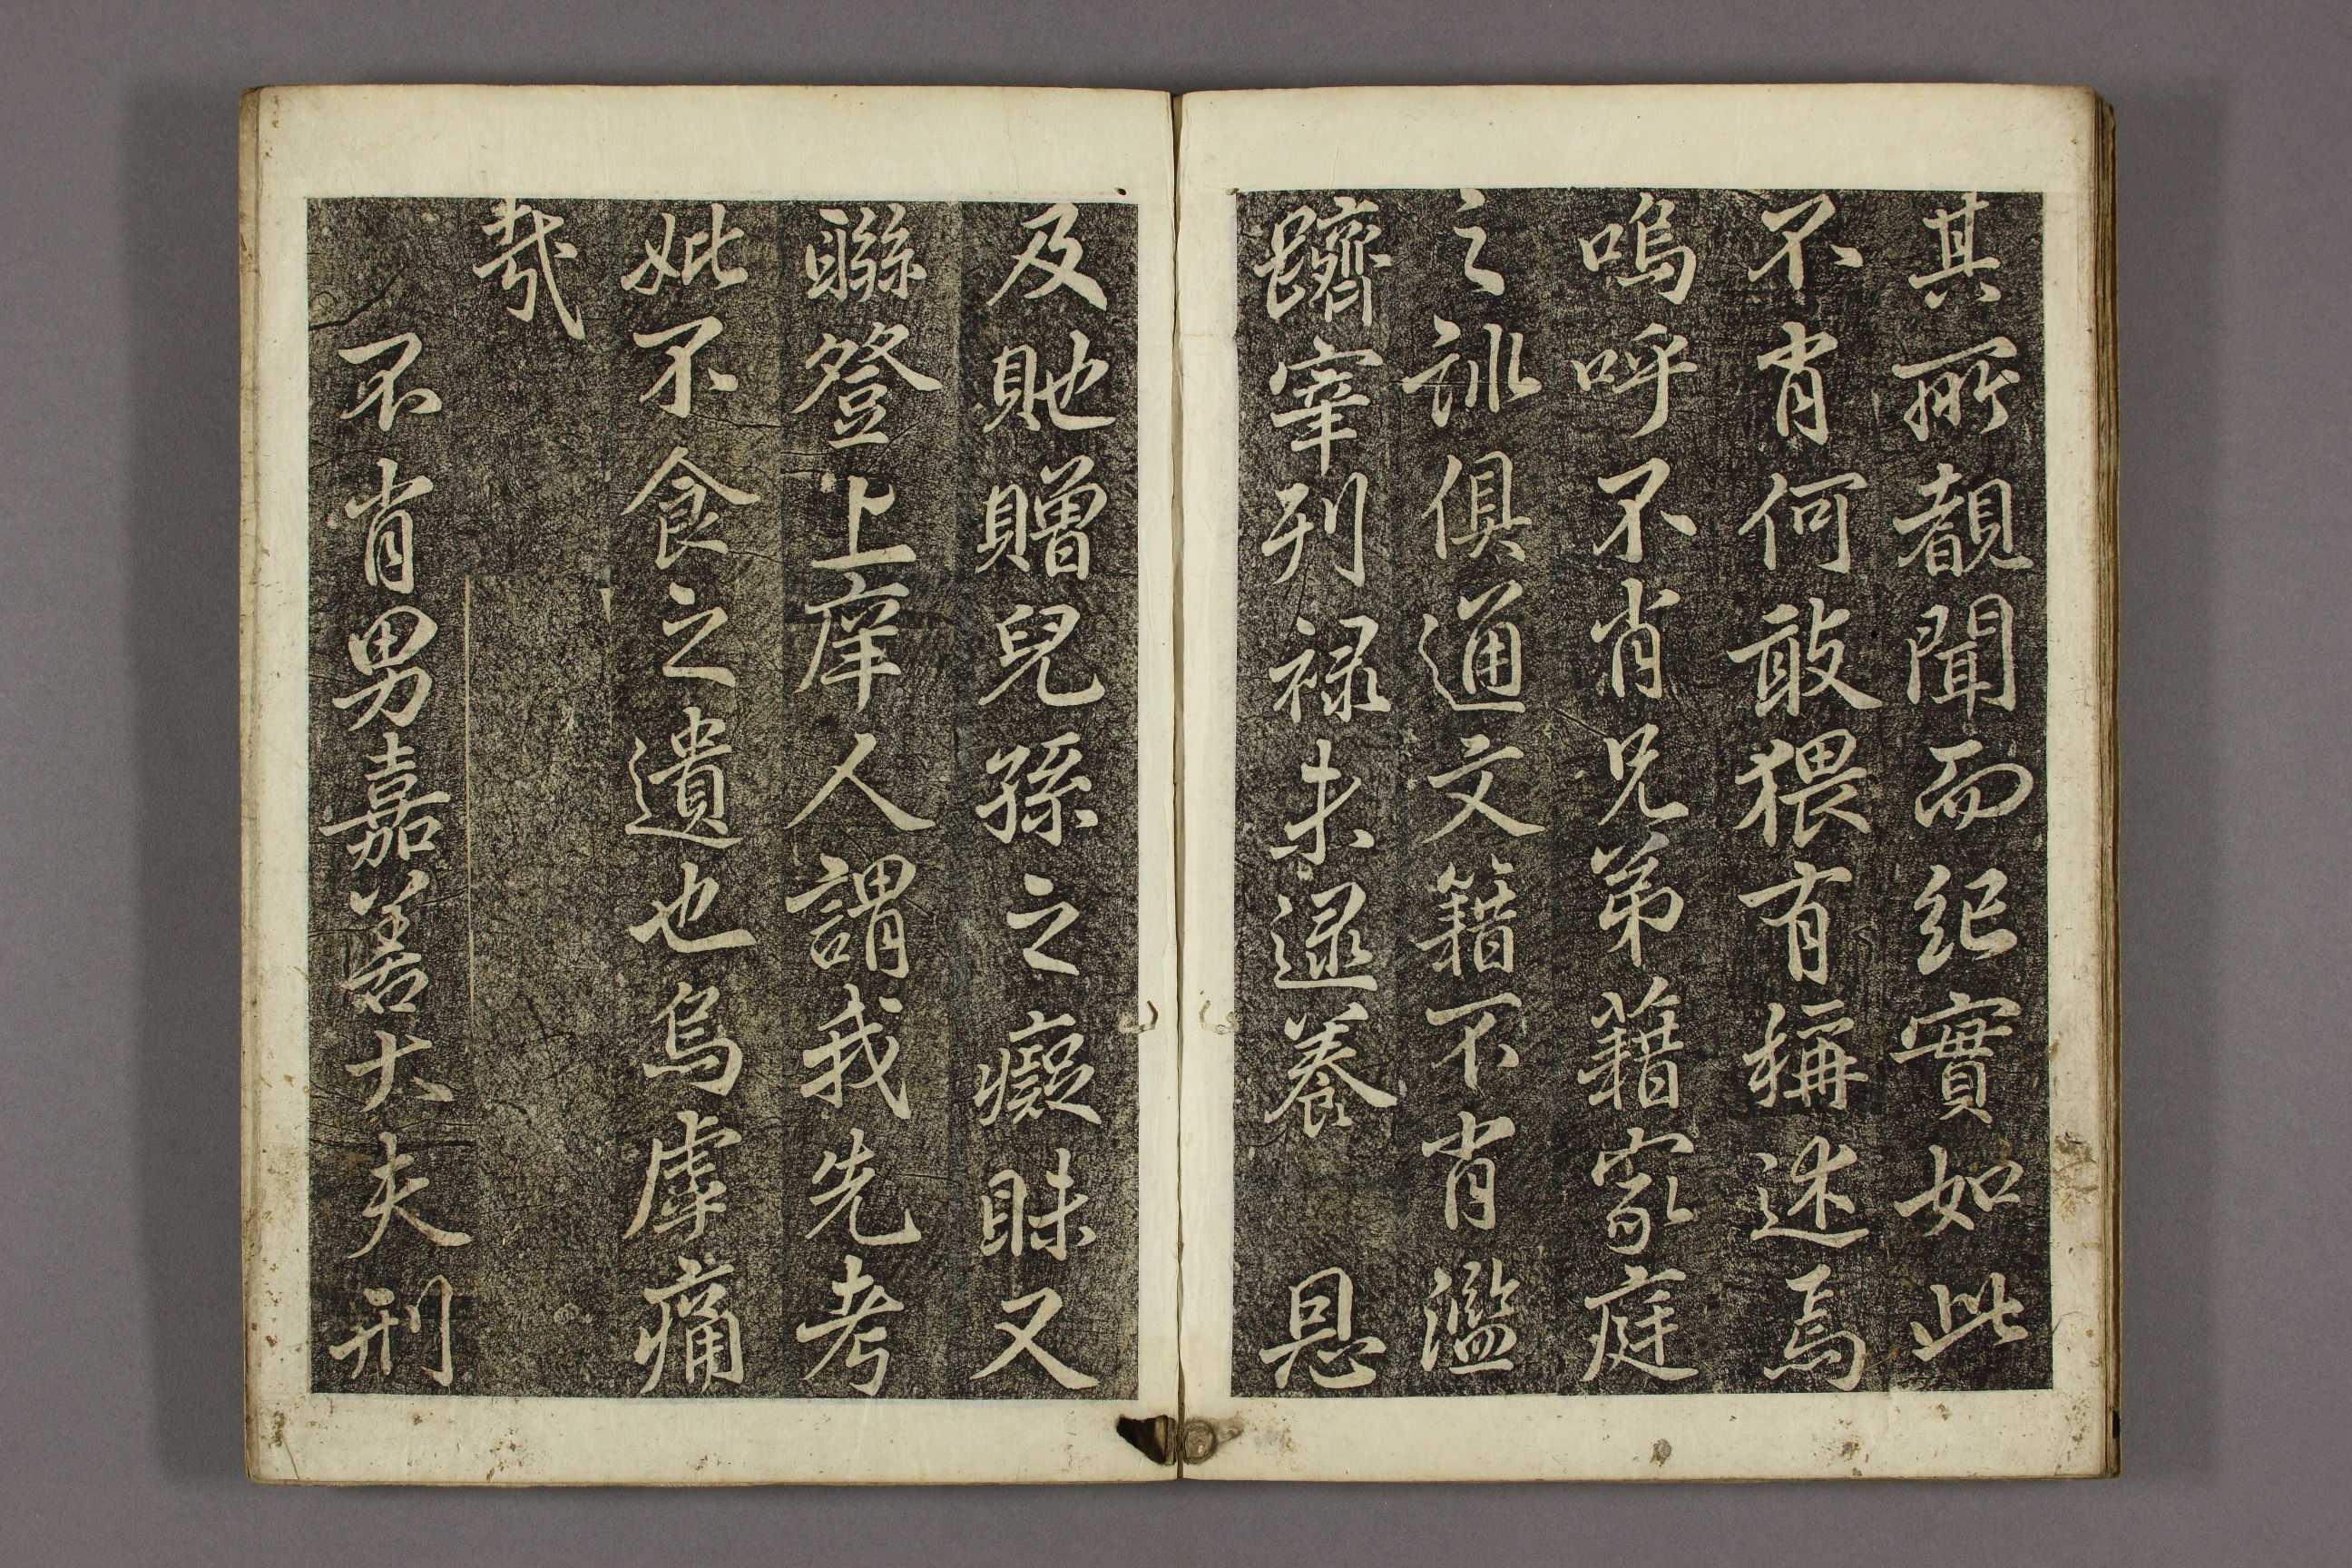 其所覩聞而紀實如此
不肖何敢猥有稱述焉
嗚呼不肖兄弟藉家庭
之訓俱通文籍不肖濫
躋宰列祿未逮養 恩
及貤贈兒孫之癡昧又
聯登上庠人謂我先考
妣不食之遺也烏虖痛
哉
不肖男嘉善大夫刑